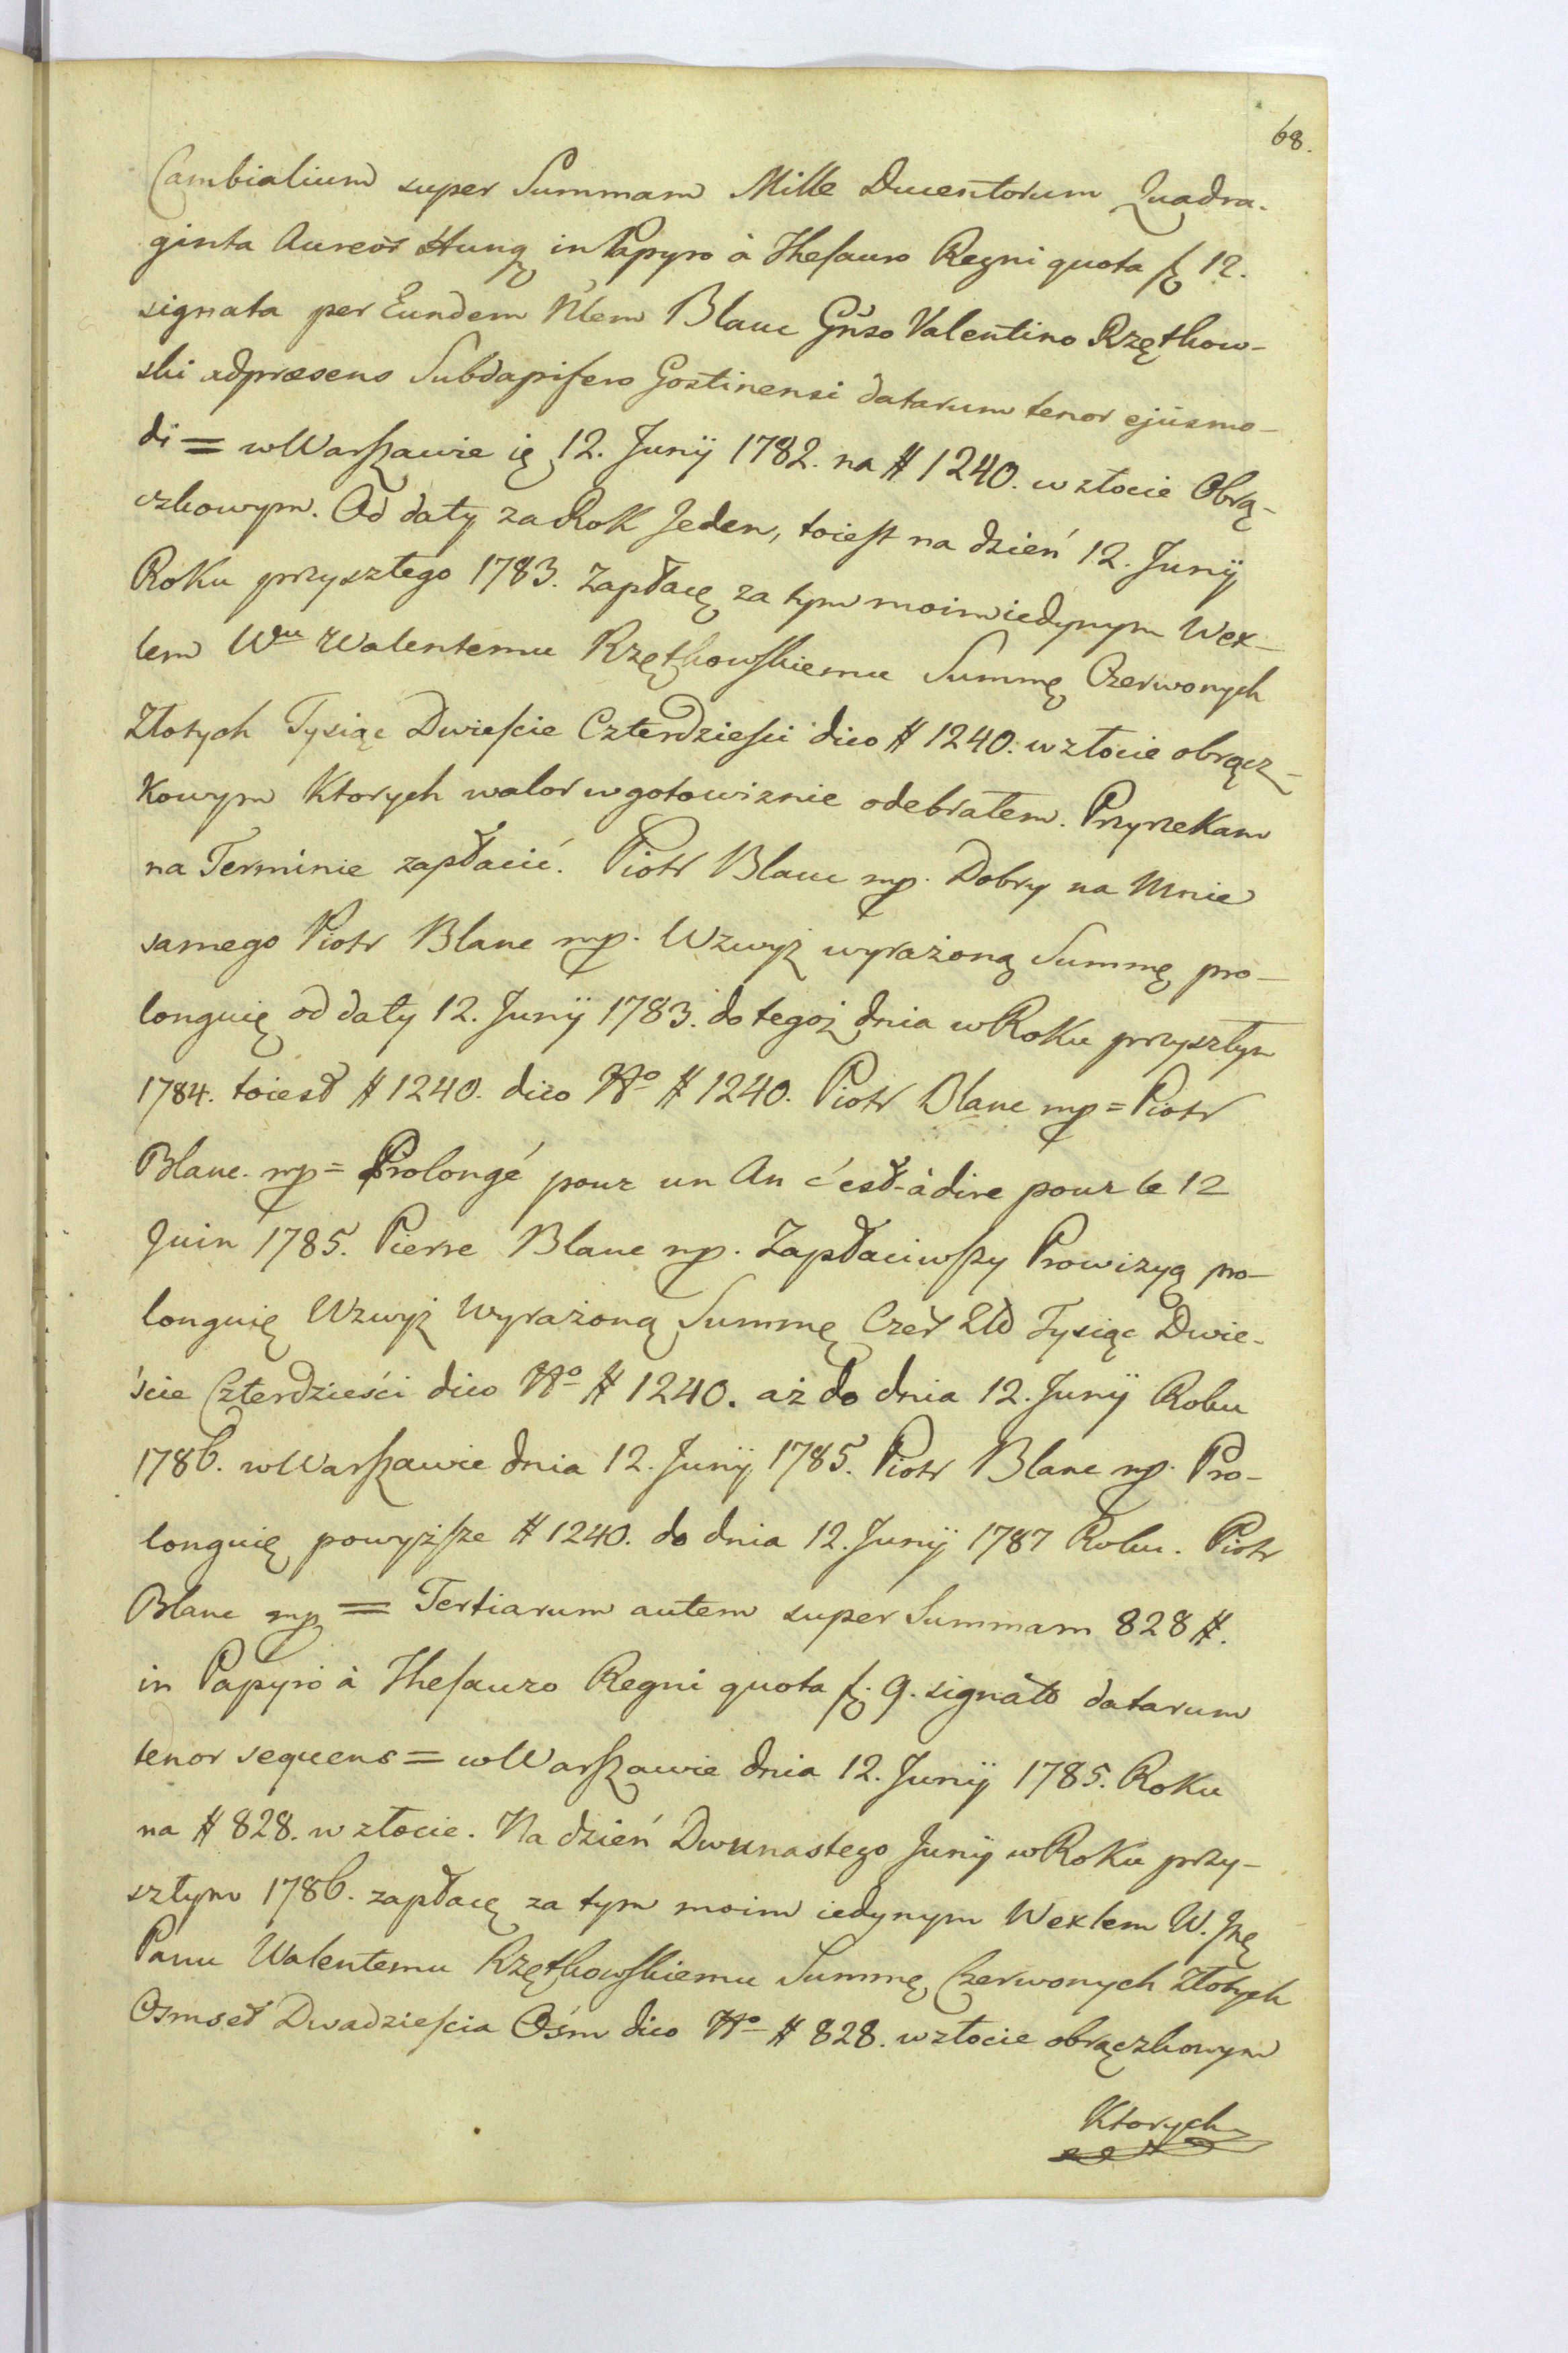 68.
Cambialium super Summam Mille Ducentorum Quadra-
ginta Aureor Hung in Papyro à Thesauro Regni quota f 12.
signata per Eundem Nlem Blanc Gnso Valentino Rzętkow-
ski adpræsens Subdapifero Gostinensi datarum tenor ejusmo-
di = w Warszawie 12. Junij 1782. na # 1240. w złocie Obrą-
czkowym. Od daty za Rok Jeden, toiest na dzień 12. Junij
Roku przyszłego 1783. Zapłacę za tym moim iedynym Wex-
lem Wu Walentemu Rzętkowskiemu Summę Czerwonych
Złotych Tysiąc Dwieście Czterdzieści dico # 1240. w złocie obrącz-
kowym Ktorych walor w gotowiznie odebrałem. Przyrzekam
na Terminie zapłacić. Piotr Blanc mp. Dobry na Mnie
samego Piotr Blanc mp. Wzwyż wyrażoną Summę pro-
longuię od daty 12. Junij 1783. do tegoż dnia w Roku przyszłym
1784. toiest # 1240. dico No # 1240. Piotr Blanc mp = Piotr
Blanc mp = Prolongé pour un An c'est-à dire pour le 12
Juin 1785. Pierre Blanc mp. Zapłaciwszy Prowizyą pro-
longuię Wzwyż Wyrażoną Summę Czer Zło Tysiąc Dwie-
ście Czterdzieści dico No # 1240. aż do dnia 12. Junij Roku
1786. w Warszawie dnia 12. Junij 1785. Piotr Blanc mp. Pro-
longuię powyższe # 1240. do dnia 12. Junij 1787 Roku. Piotr
Blanc mp = Tertiarum autem super Summam 828 #.
in Papyro à Thesauro Regni quota f. 9. signato datarum
tenor sequens = w Warszawie dnia 12. Junij 1785. Roku
na # 828. w złocie. Na dzień Dwunastego Junij w Roku przy-
szłym 1786. zapłacę za tym moim iedynym Wexlem W.
Panu Walentemu Rzętkowskiemu Summę Czerwonych Złotych
Osmset Dwadzieścia Ośm dico No # 828. w złocie obrączkowym
Ktorych